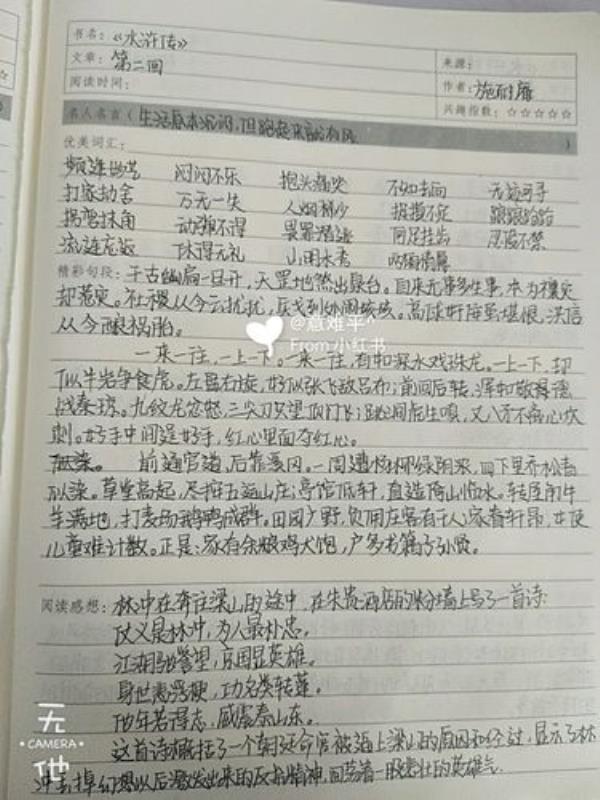 书名：《水浒传》
文章：第二回
来源：
阅读时间：
作者：施耐庵
兴趣指数：☆☆☆☆☆
名人名言（生活原本沉闷，但跑起来就有风）
优美词汇：
频迍 闷闷不乐 抱头痛哭 不知去向 无迹可寻
打家劫舍 万无一失 人烟稀少 捉摸不定 踉踉跄跄
拐弯抹角 动弹不得 畏罪潜逃 何足挂齿 忍俊不禁
流连忘返 休得无礼 山明水秀
精彩句段：千古幽扃一旦开，天罡地煞出泉台。自来无事多生事，本为禳灾
却惹灾。社稷从今云扰扰，兵戈到处闹垓垓。高俅奸佞虽堪恨，洪信
从今酿祸胎。
一来一往，一上一下。一来一往，有如深水戏珠龙。一上一下，却
似半岩争食虎。左盘右旋，好似张飞敌吕布；前回后转，浑如敬德
战秦琼。九纹龙忿怒，三尖刀只望顶门飞；跳涧虎生嗔，丈八矛不离心坎
刺。好手中间逞好手，红心里面夺红心。
前通官道，后靠溪冈。一周遭杨柳绿阴浓，四下里乔松青
似染。草堂高起，尽按五运山庄；亭馆低轩，直造倚山临水。转屋角牛
羊满地，打麦场鹅鸭成群。田园广野，负佣庄客有千人；家眷轩昂，女使
儿童难计数。正是：家有余粮鸡犬饱，户多书籍子孙贤。
阅读感想：林冲在奔往梁山的途中，在朱贵酒店的粉墙上写了一首诗：
仗义是林冲，为人最朴忠。
江湖驰誉望，京国显英雄。
身世悲浮梗，功名类转蓬。
他年若得志，威震泰山东。
这首诗概括了一个朝廷命官被逼上梁山的原因和经过，显示了林
冲丢掉幻想以后激发出来的反抗精神，回荡着一股悲壮的英雄气。
@意难平^
From 小红书
无
·CAMERA·
他